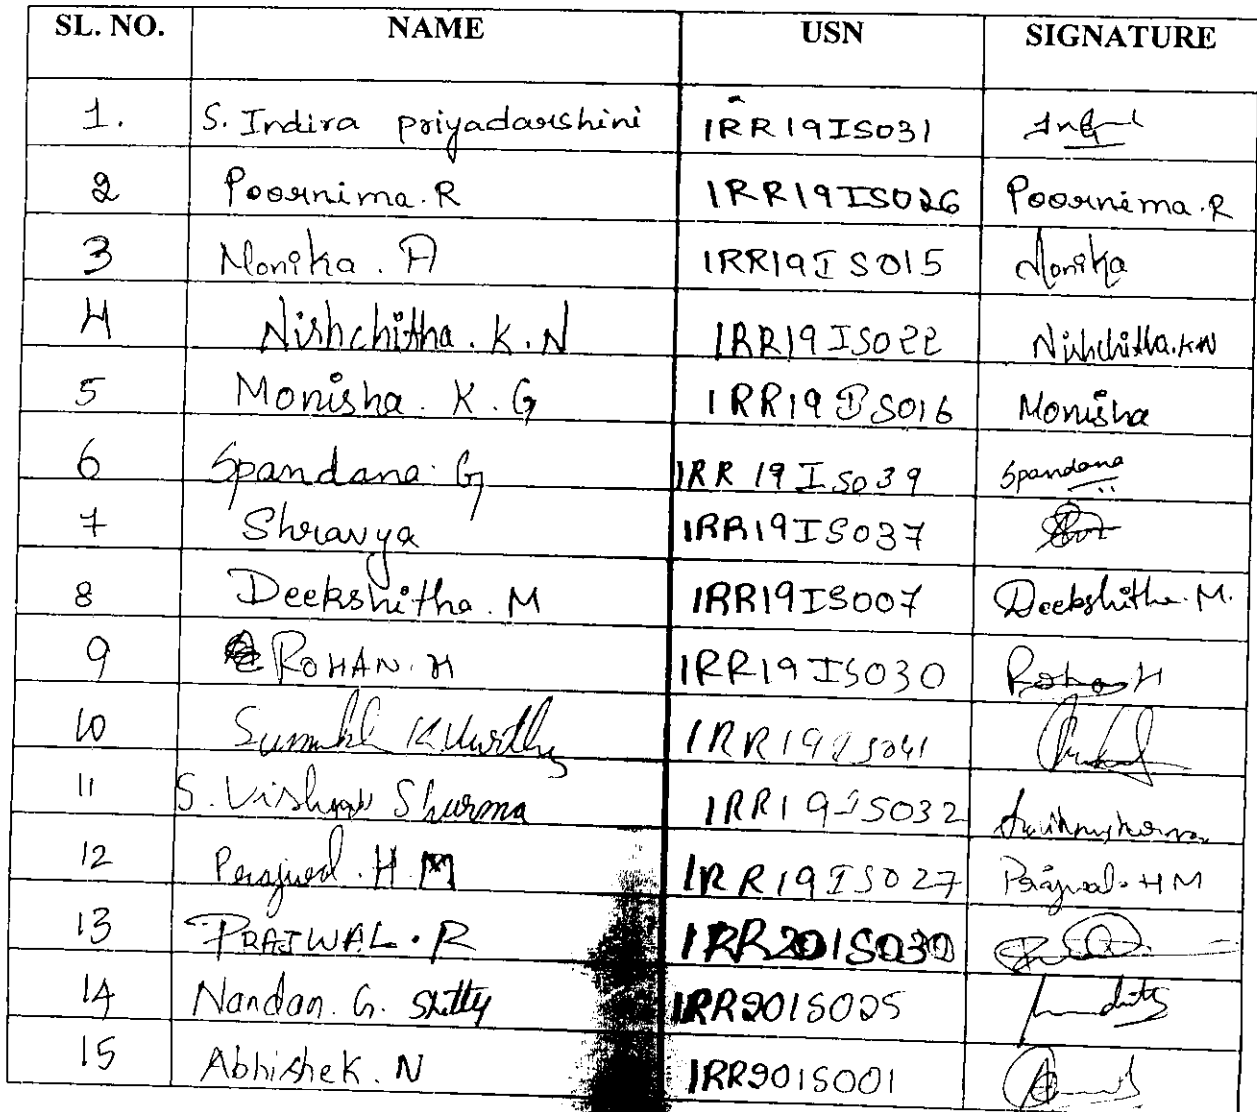 SL. NO. NAME USN SIGNATURE
1. S. Indira priyadarshini 1RR19IS031
2 Poornima.R 1RR19IS026 Poornima.R
3 Monika. A 1RR19IS015 Monika
4 Nishchitha. K. N 1RR19IS022 Nishchitha.KN
5 Monisha. K. G 1RR19IS016 Monisha
6 Spandana. G 1RR19IS039 Spandana
7 Shravya 1RR19IS037
8 Deekshitha. M 1RR19IS007 Deekshitha. M.
9 ROHAN. H 1RR19IS030 Rohan H
10 Sumukh K Murthy 1RR19IS041
11 S. Sharma 1RR19IS032
12 Prajwal. H M 1RR19IS027 Prajwal. H M
13 PRAJWAL. R 1RR20IS030
14 Nandan. G. Shetty 1RR20IS025
15 Abhishek. N 1RR20IS001